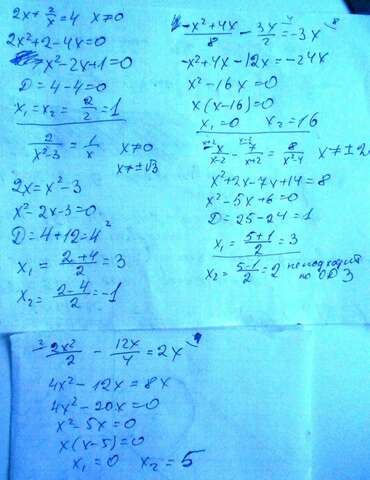 2x + 2/x = 4  x ≠ 0
2x² + 2 - 4x = 0
x² - 2x + 1 = 0
D = 4 - 4 = 0
x₁ = x₂ = 2/2 = 1
2/(x² - 3) = 1/x  x ≠ 0
x ≠ ±√3
2x = x² - 3
x² - 2x - 3 = 0
D = 4 + 12 = 4²
x₁ = (2 + 4)/2 = 3
x₂ = (2 - 4)/2 = -1
(-x² + 4x)/8 - 3x/2 = -3x
-x² + 4x - 12x = -24x
x² - 16x = 0
x(x - 16) = 0
x₁ = 0  x₂ = 16
x/(x - 2) - 7/(x + 2) = 8/(x² - 4)  x ≠ ±2
x² + 2x - 7x + 14 = 8
x² - 5x + 6 = 0
D = 25 - 24 = 1
x₁ = (5 + 1)/2 = 3
x₂ = (5 - 1)/2 = 2 не подходит
по ОДЗ
2x²/2 - 12x/4 = 2x
4x² - 12x = 8x
4x² - 20x = 0
x² - 5x = 0
x(x - 5) = 0
x₁ = 0  x₂ = 5